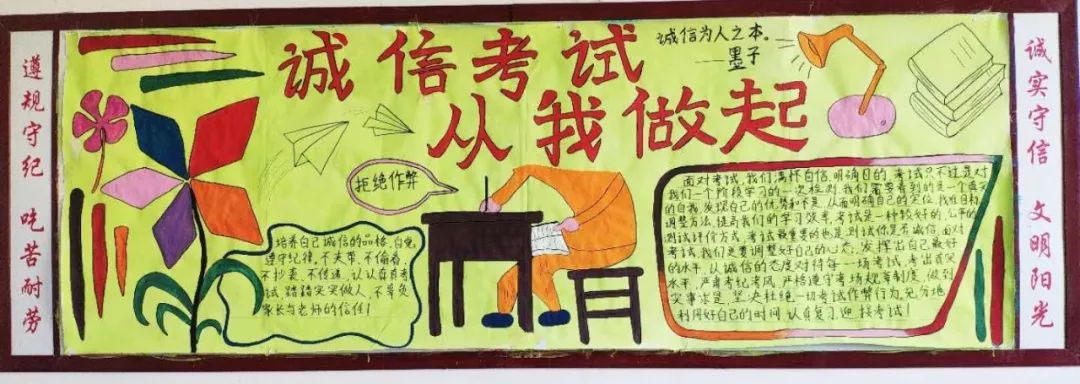 遵规守纪 吃苦耐劳
诚信考试
从我做起
诚信为人之本。
——墨子
拒绝作弊
培养自己诚信的品格,自觉
遵守纪律,不夹带、不偷看、
不抄袭、不传递,认认真真考
试,踏踏实实做人,不辜负
家长与老师的信任!
面对考试,我们满怀自信,明确目的,考试只不过是对
我们一个阶段学习的一次检测,我们需要看到的是一个真实
的自我,发现自己的优势和不足,从而明确自己的定位,找准目标,
调整方法,提高我们的学习效率,考试是一种较好的,公平的
测试评价方式,考试最重要的也是测试你是否诚信,面对
考试,我们更要调整好自己的心态,发挥出自己最好
的水平,以诚信的态度对待每一场考试,考出真实
水平,严肃考纪考风,严格遵守考场规章制度,做到
实事求是,坚决杜绝一切考试作弊行为,充分地
利用好自己的时间,认真复习,迎接考试!
诚实守信 文明阳光